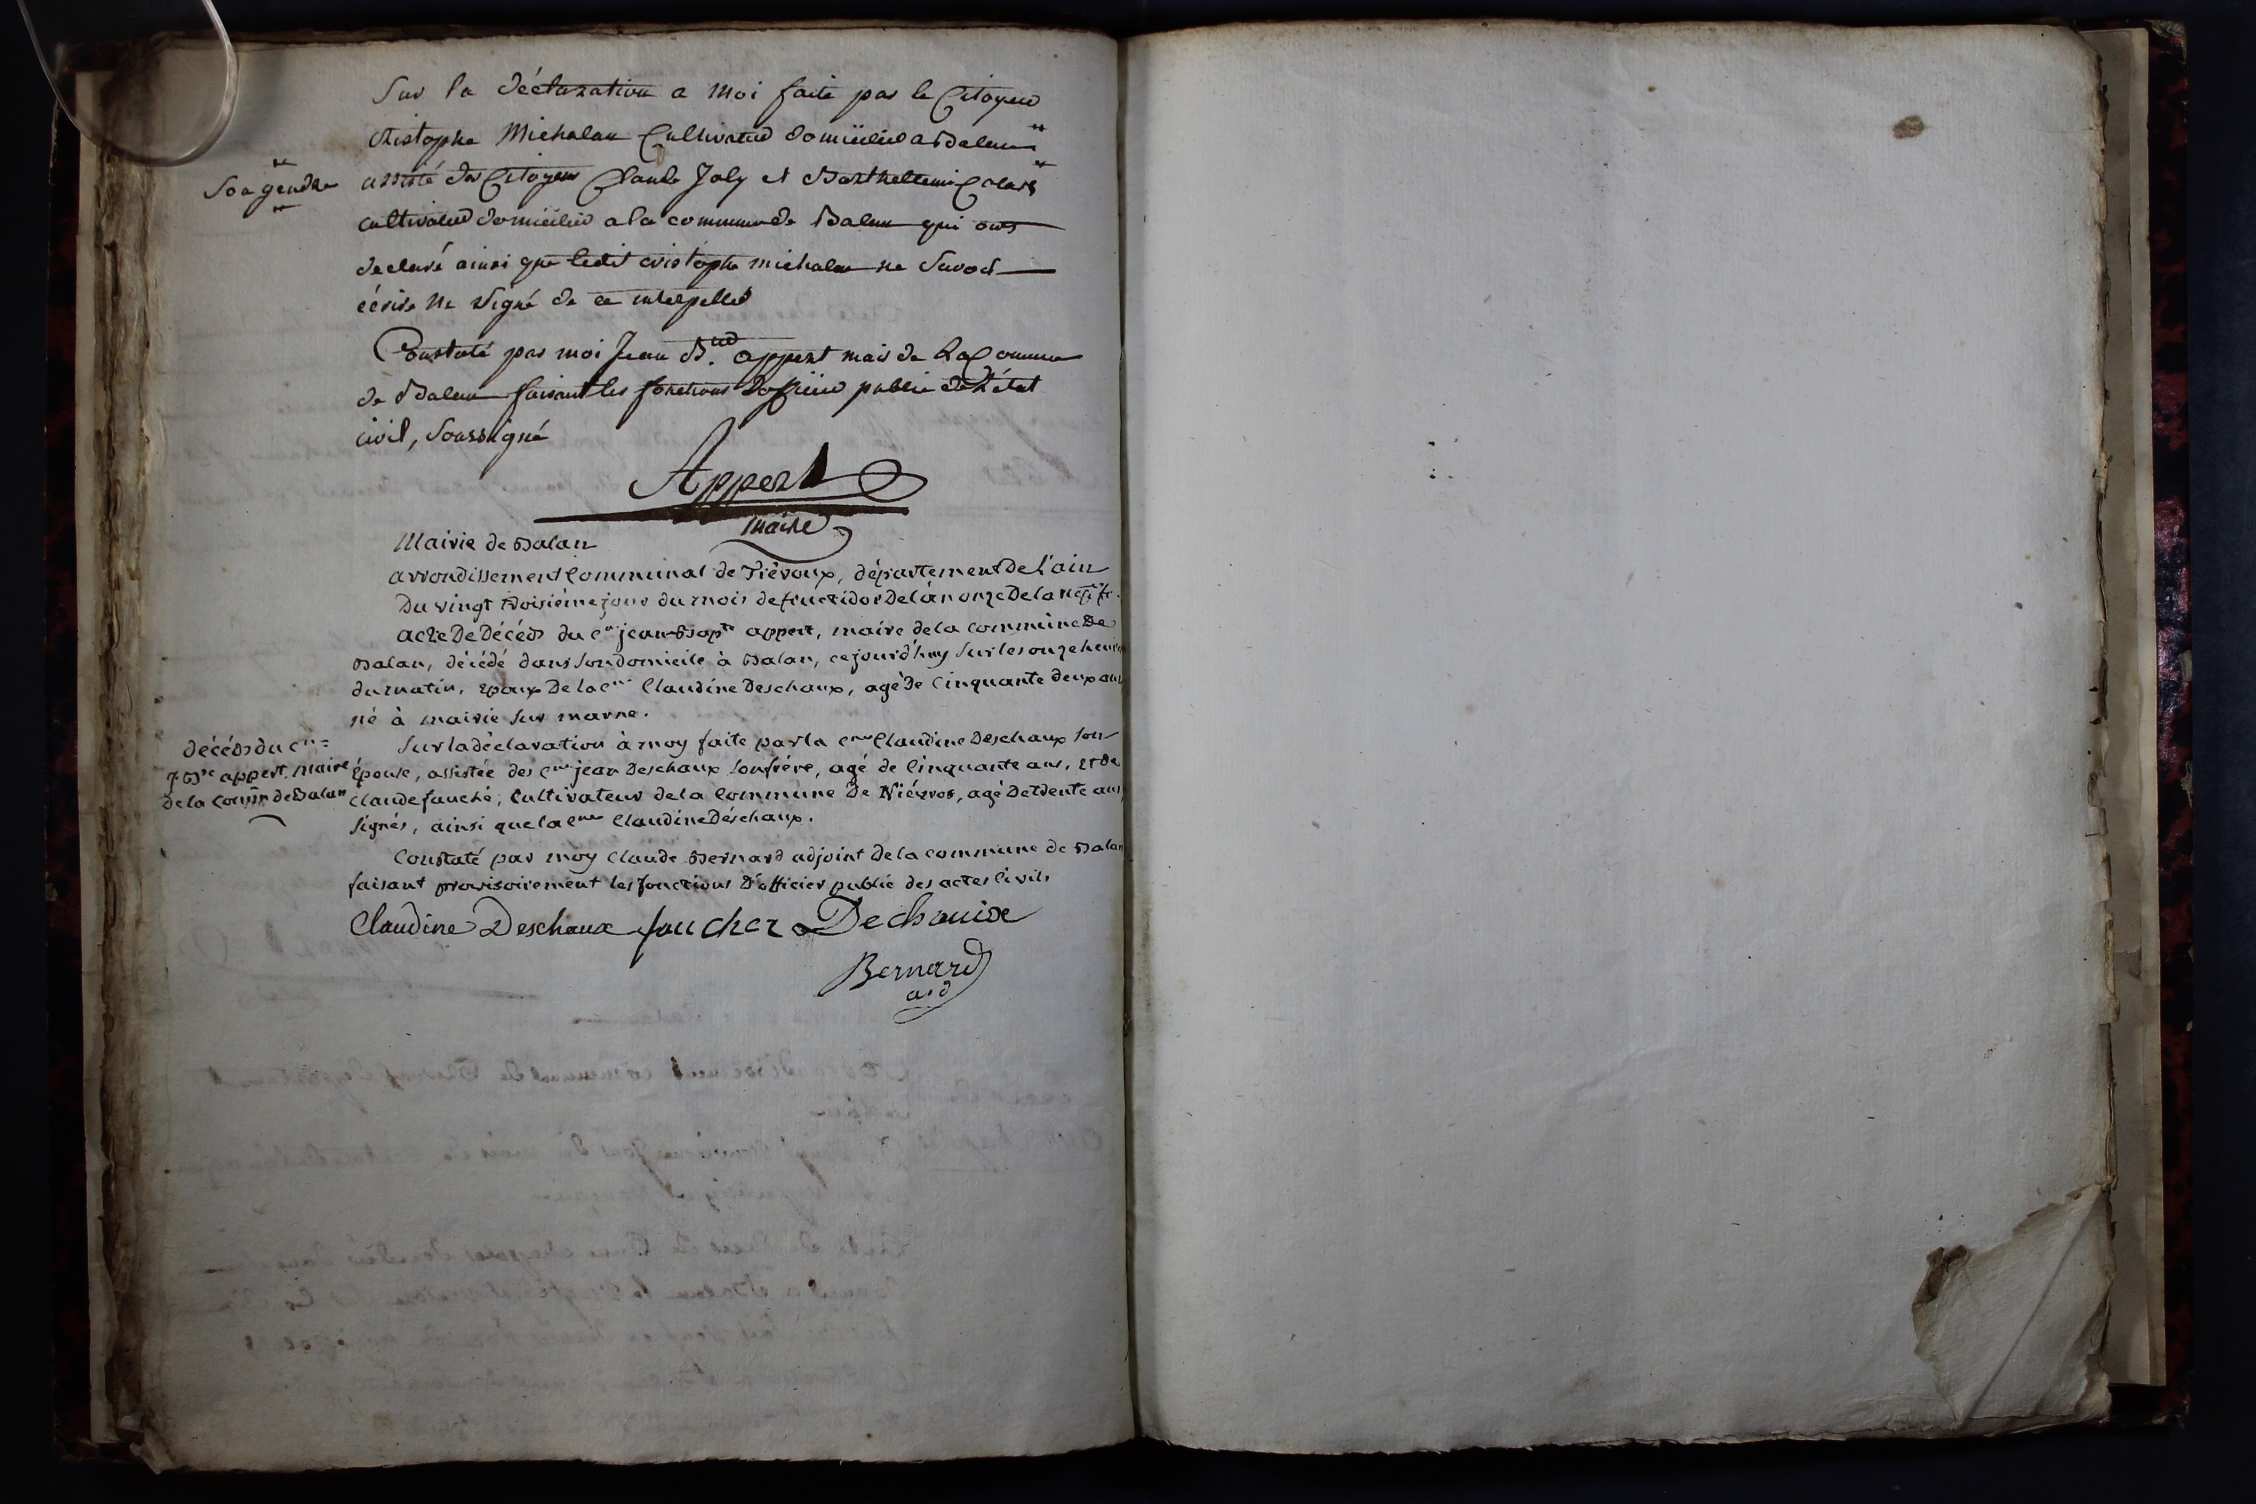 Sur la déclaration a moi faite par le Citoyen
christophe Michalan Cultivateur domicilié a Balan
Son gendre
assisté des Citoyens Claude Joly et Barthellemi
cultivateur domicilié a la commune de Balan qui ont
declaré ainsi que ledit cristophe michalan ne Savoir
écrire ne signé de ce interpellé
Constaté par moi Jean B. appert maire de La Commune
de Balan faisant les fonctions d'officier public de L'état
civil, Soussigné
Appert
maire
Mairie de Balan
arrondissement Communal de Trévoux, département de L'ain
Du vingt troisiéme jour du mois de fructidor De l'an onze De la
acte De Décéds du Cen jean Bapte appert, maire de la commune De
Balan, décédé dans son domicile à Balan, ce jourd'huy sur les onze heures
du matin, Epoux De la cne Claudine Deschaux, agé De Cinquante deux ans
né à mairie sur marne.
décéds du cen
j. Bte appert, maire
De la comm de Balan
Sur la déclaration à moy faite par la cene Claudine Deschaux son
épouse, assistée des cens jean Deschaux son frére, agé de Cinquante ans, et De
Claude fauché, Cultivateur de la Commune De Niévros, agé De trente ans
signés, ainsi que la cene Claudine Déschaux.
Constaté par moy Claude Bernard adjoint De la commune de Balan
faisant provisoirement les fonctions D'officier public des actes Civils
Claudine Deschaux faucher Dechauix
Bernard